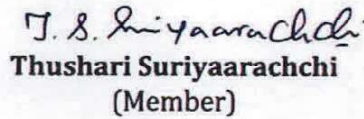 T. S. Suriyaarachchi
Thushari Suriyaarachchi
(Member)